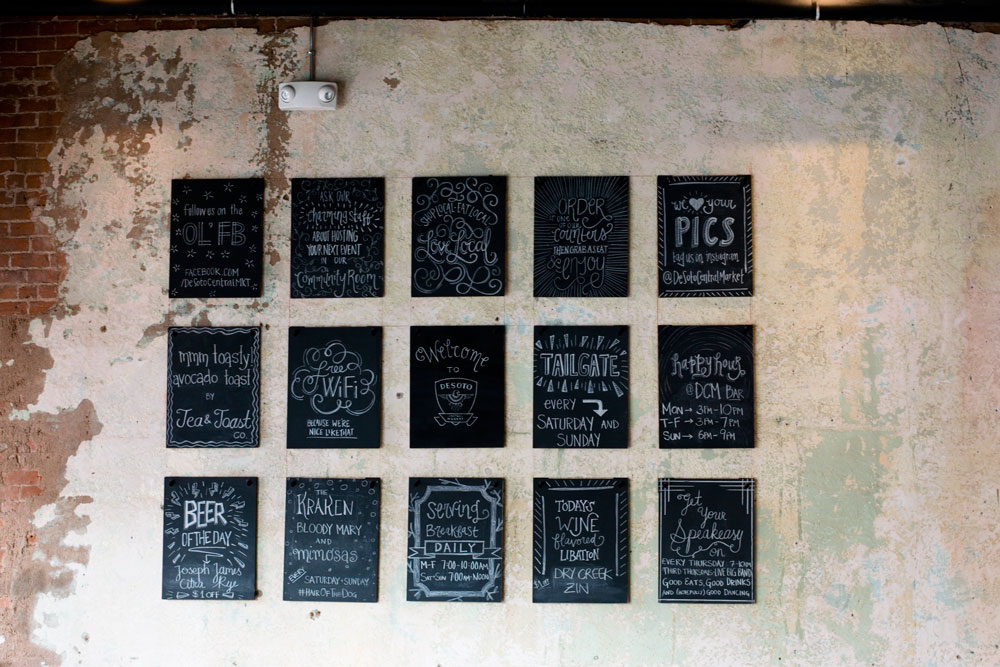 follow us on the
OL' FB
FACEBOOK.COM
/DESOTOCENTRALMKT
ASK OUR
charming staff
ABOUT HOSTING
YOUR NEXT EVENT
IN OUR
Community Room
SHOP LOCAL EAT LOCAL
Love Local
ORDER
one of our
counters
THEN GRAB A SEAT
Enjoy
we ♥ your
PICS
tag us on instagram
@DeSotoCentralMarket
mmm toasty!
avocado toast
by
Tea & Toast
CO.
free
WiFi
BECAUSE WE'RE
NICE LIKE THAT
Welcome
TO
DESOTO
TAILGATE
every →
SATURDAY AND
SUNDAY
happy hour
@ DCM BAR
MON → 3PM - 10PM
T-F → 3PM - 7PM
SUN → 6PM - 9PM
BEER
OF THE DAY
Joseph James
Citra Rye
$1 OFF
THE
KRAKEN
BLOODY MARY
AND
mimosas
EVERY
SATURDAY + SUNDAY
#HAIR OF THE DOG
Serving
Breakfast
DAILY
M-F 7:00-10:00AM
SAT-SUN 7:00AM-NOON
TODAYS
WINE
flavored
LIBATION
DRY CREEK
ZIN
Get
Your
Speakeasy
on
EVERY THURSDAY 7-10PM
THIRD THURSDAYS = LIVE BIG BAND
GOOD EATS, GOOD DRINKS
AND (HOPEFULLY) GOOD DANCING